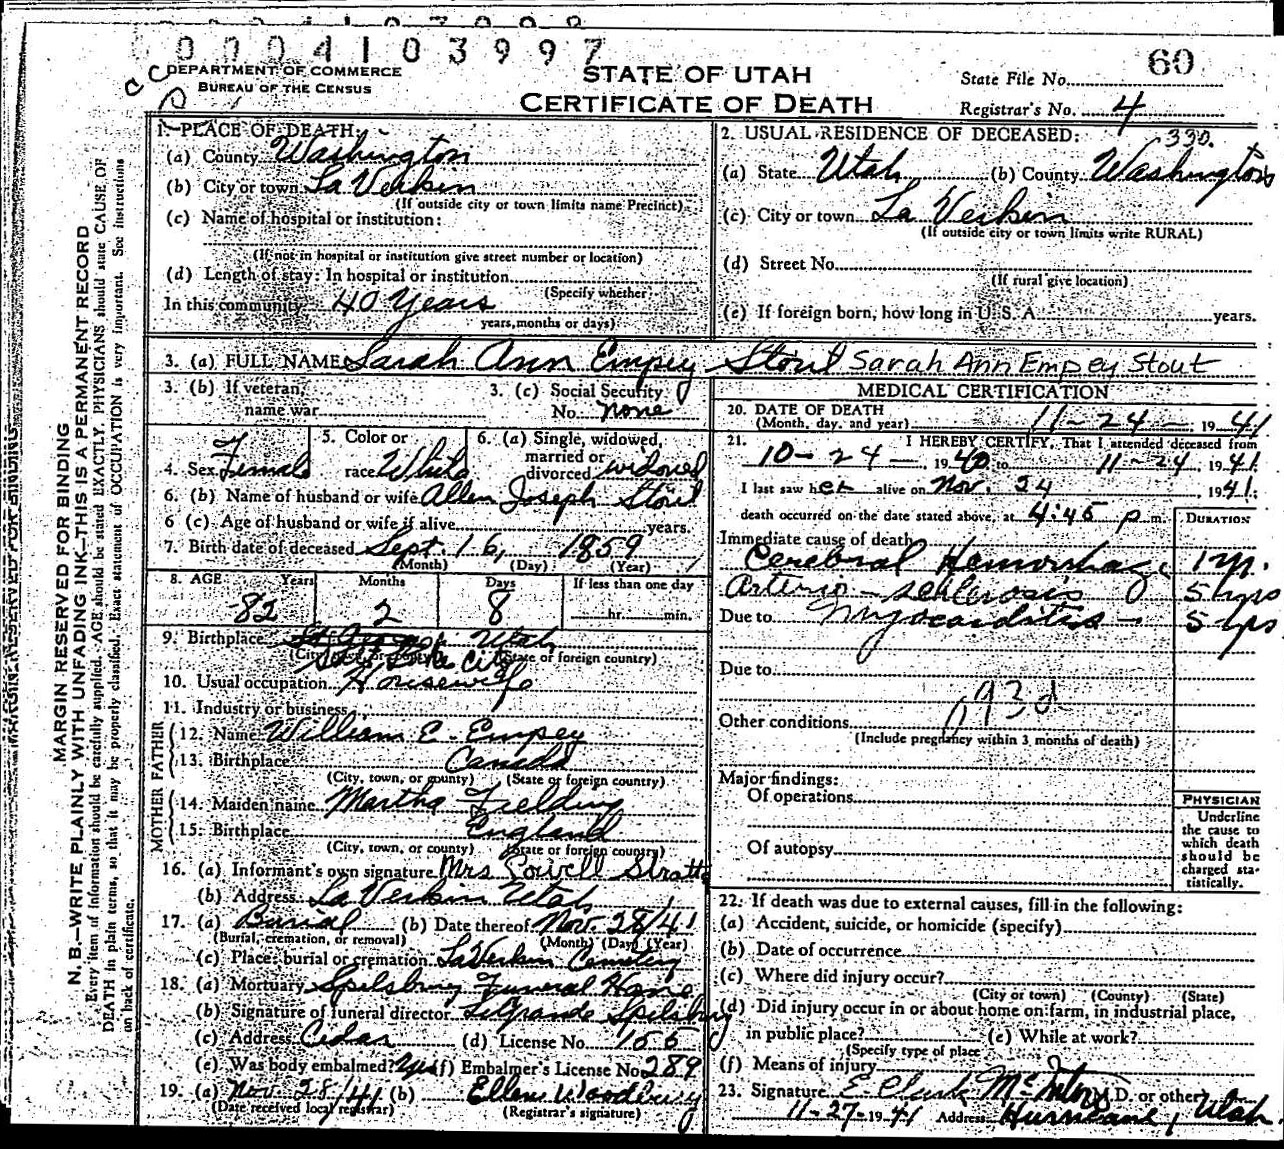 0004103997
DEPARTMENT OF COMMERCE
BUREAU OF THE CENSUS
STATE OF UTAH
CERTIFICATE OF DEATH
State File No. 60
Registrar's No. 4
MARGIN RESERVED FOR BINDING
N. B.—WRITE PLAINLY WITH UNFADING INK—THIS IS A PERMANENT RECORD
Every item of information should be carefully supplied. AGE should be stated EXACTLY. PHYSICIANS should state CAUSE OF
DEATH in plain terms, so that it may be properly classified. Exact statement of OCCUPATION is very important. See instructions
on back of certificate.
1. PLACE OF DEATH:
(a) County Washington
(b) City or town La Verkin
(If outside city or town limits name Precinct)
(c) Name of hospital or institution:
(If not in hospital or institution give street number or location)
(d) Length of stay: In hospital or institution
(Specify whether
In this community 40 Years
years, months or days)
2. USUAL RESIDENCE OF DECEASED: 330.
(a) State Utah (b) County Washington
(c) City or town La Verkin
(If outside city or town limits write RURAL)
(d) Street No.
(If rural give location)
(e) If foreign born, how long in U. S. A. years.
3. (a) FULL NAME Sarah Ann Empey Stout Sarah Ann Empey Stout
3. (b) If veteran,
name war
3. (c) Social Security
No. none
4. Sex Female
5. Color or
race White
6. (a) Single, widowed,
married or
divorced widowed
6. (b) Name of husband or wife Allen Joseph Stout
6 (c). Age of husband or wife if alive years.
7. Birth date of deceased Sept. 16, 1859
(Month) (Day) (Year)
8. AGE Years Months Days If less than one day
82 2 8 hr. min.
9. Birthplace St George Utah
(State or foreign country)
Salt Lake City
10. Usual occupation Housewife
11. Industry or business
FATHER
12. Name William E. Empey
13. Birthplace Canada
(City, town, or county) (State or foreign country)
MOTHER
14. Maiden name Martha Fielding
15. Birthplace England
(City, town, or county) (State or foreign country)
16. (a) Informant's own signature Mrs Powell Stratto
(b) Address La Verkin Utah
17. (a) Burial (b) Date thereof Nov. 28/41
(Burial, cremation, or removal) (Month) (Day) (Year)
(c) Place: burial or cremation LaVerkin Cemetery
18. (a) Mortuary Spilsbury Funeral Home
(b) Signature of funeral director LeGrande Spilsbury
(c) Address Cedar (d) License No. 155
(e) Was body embalmed? Yes (f) Embalmer's License No 289
19. (a) Nov. 28/41 (b) Ellen Woodbury
(Date received local registrar) (Registrar's signature)
MEDICAL CERTIFICATION
20. DATE OF DEATH
(Month, day, and year) 11-24- 1941
21. I HEREBY CERTIFY, That I attended deceased from
10-24-, 1940 to 11-24, 1941
I last saw her alive on Nov. 24, 1941;
death occurred on the date stated above, at 4:45 p m. DURATION
Immediate cause of death
Cerebral Hemorrhage 1 yr.
Arterio-schlerosis 5 yrs
Due to Myocarditis - 5 yrs
Due to
93d
Other conditions
(Include pregnancy within 3 months of death)
Major findings:
Of operations
Of autopsy
PHYSICIAN
Underline
the cause to
which death
should be
charged sta-
tistically.
22. If death was due to external causes, fill in the following:
(a) Accident, suicide, or homicide (specify)
(b) Date of occurrence
(c) Where did injury occur?
(City or town) (County) (State)
(d) Did injury occur in or about home on farm, in industrial place,
in public place? (e) While at work?
(Specify type of place
(f) Means of injury
23. Signature E Clark McIntire M.D. or other
11-27-1941 Address Hurricane, Utah.